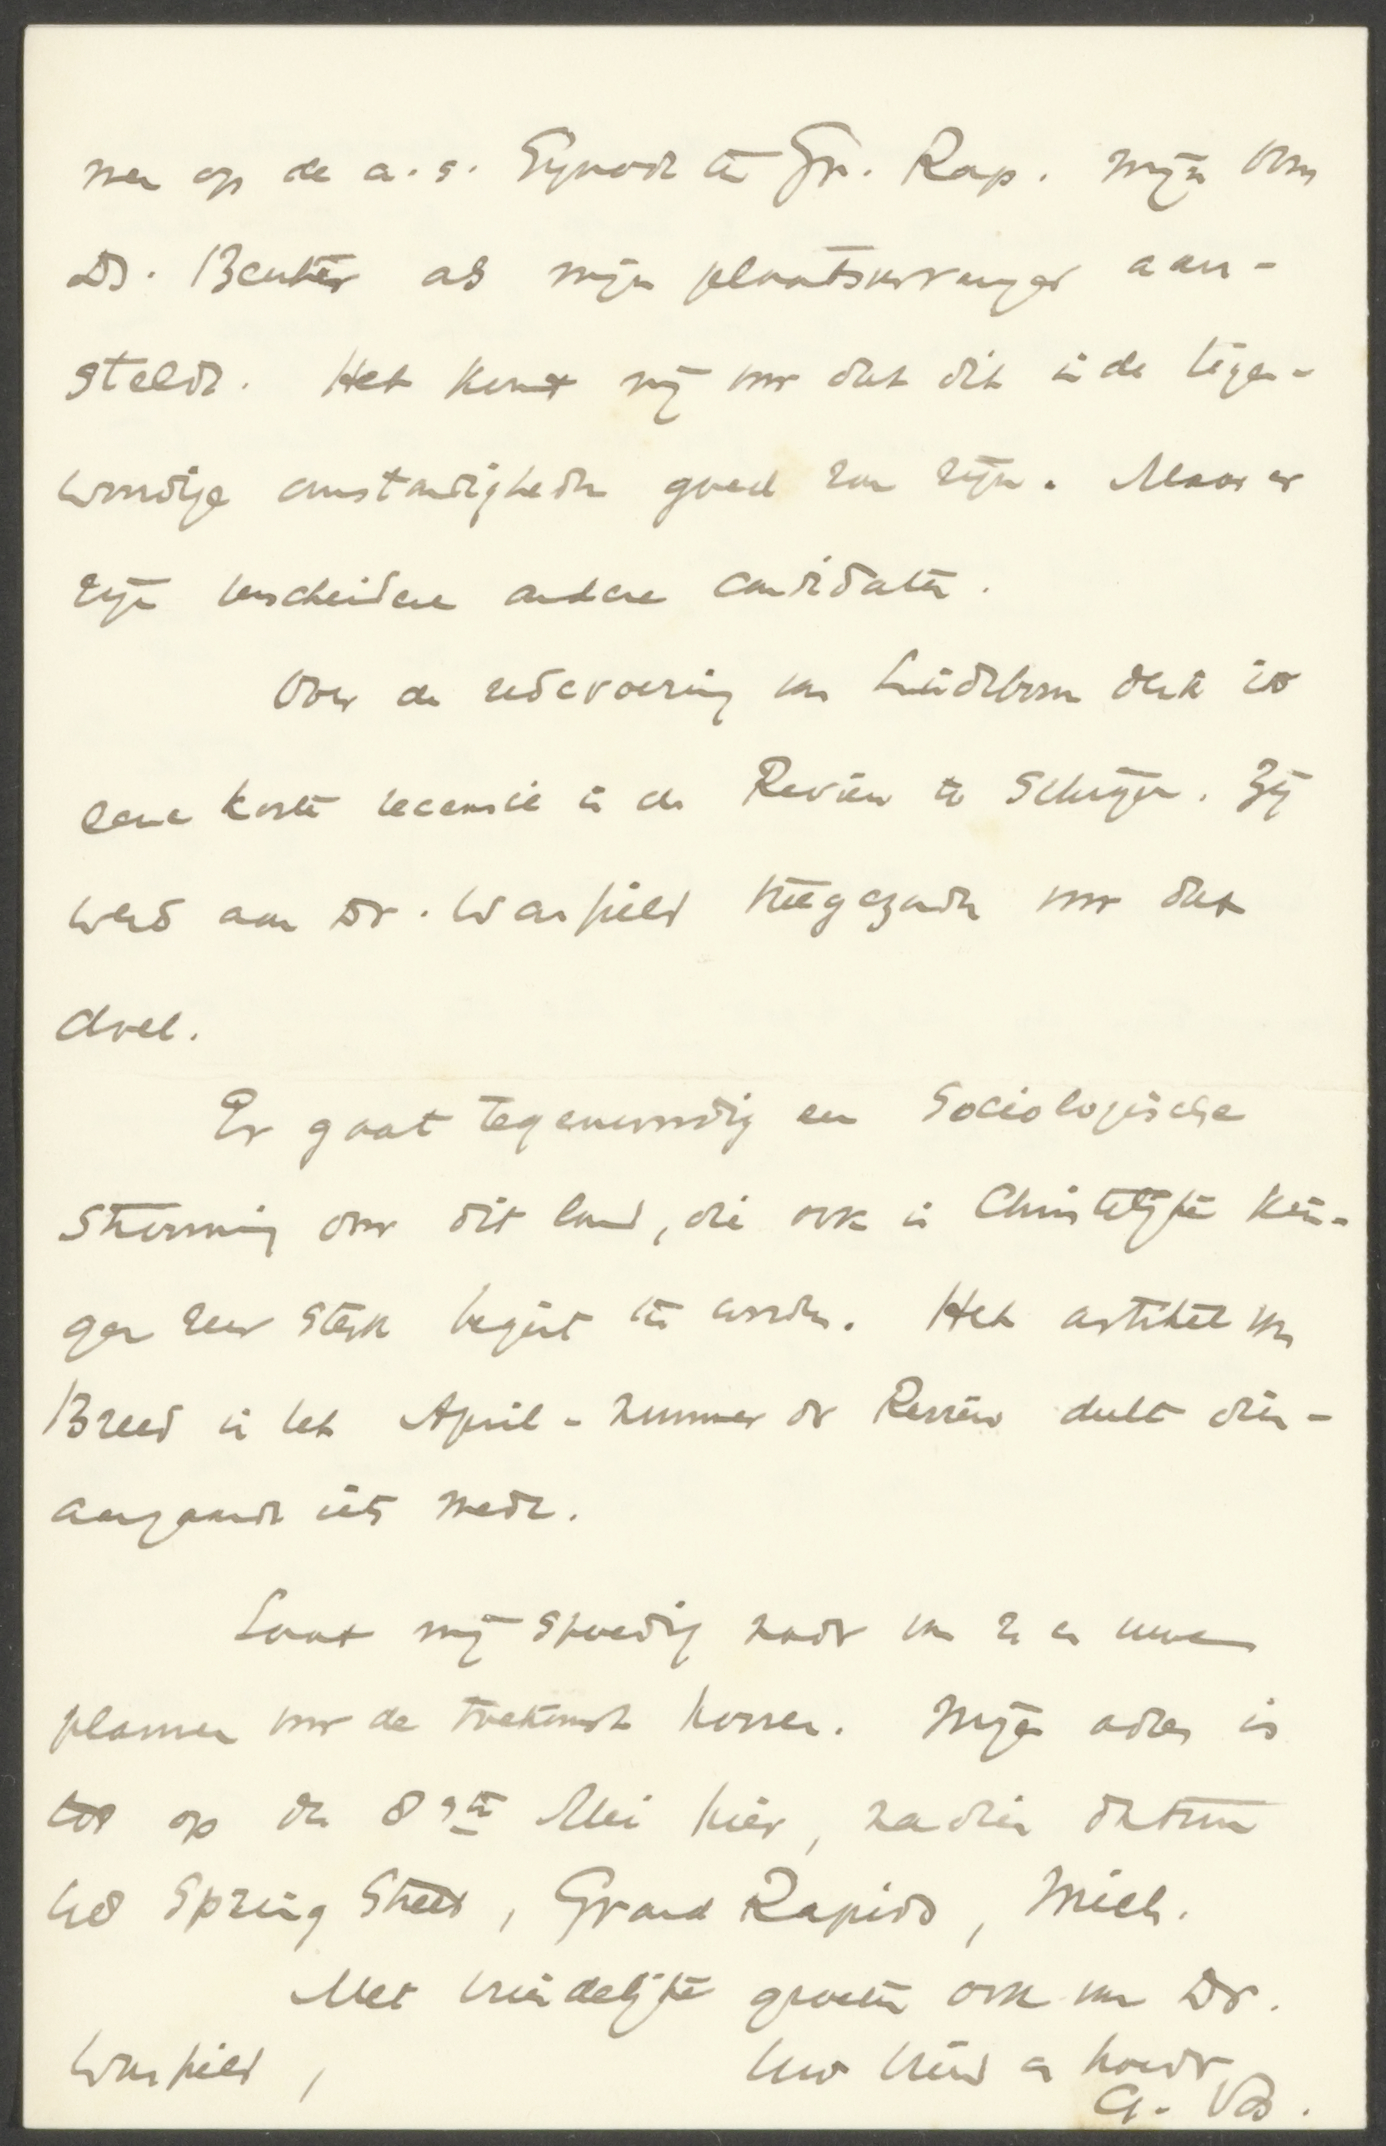 men op de a.s. Synode te Gr. Rap. mijn Oom
Ds. Beuker als mijn plaatsvervanger aan-
stelde. Het komt mij voor dat dit in de tegen-
woordige omstandigheden goed zou zijn. Maar er
zijn verscheidene andere candidaten.
Over de redevoering van Lindeboom denk ik
eene korte recensie in de Review te schrijven. Zij
werd aan Dr. Warfield toegezonden voor dat
doel.
Er gaat tegenwoordig een Sociologische
strooming door dit land, die ook in Christelijke krin-
gen zeer sterk begint te worden. Het artikel van
Breed in het April-nummer der Review deelt dien-
aangaande iets mede.
Laat mij spoedig nader van u en uwe
plannen voor de toekomst hooren. Mijn adres is
tot op den 8sten Mei hier, na dien datum
48 Spring Street, Grand Rapids, Mich.
Met vriendelijke groeten ook van Dr.
Warfield,
Uw vriend en broeder,
G. Vos.